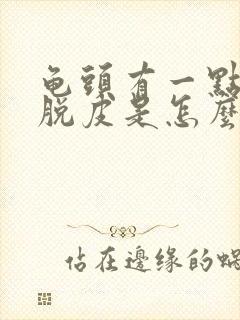 龟頭有一點
脫皮是怎麼
佔在邊缘的蝸